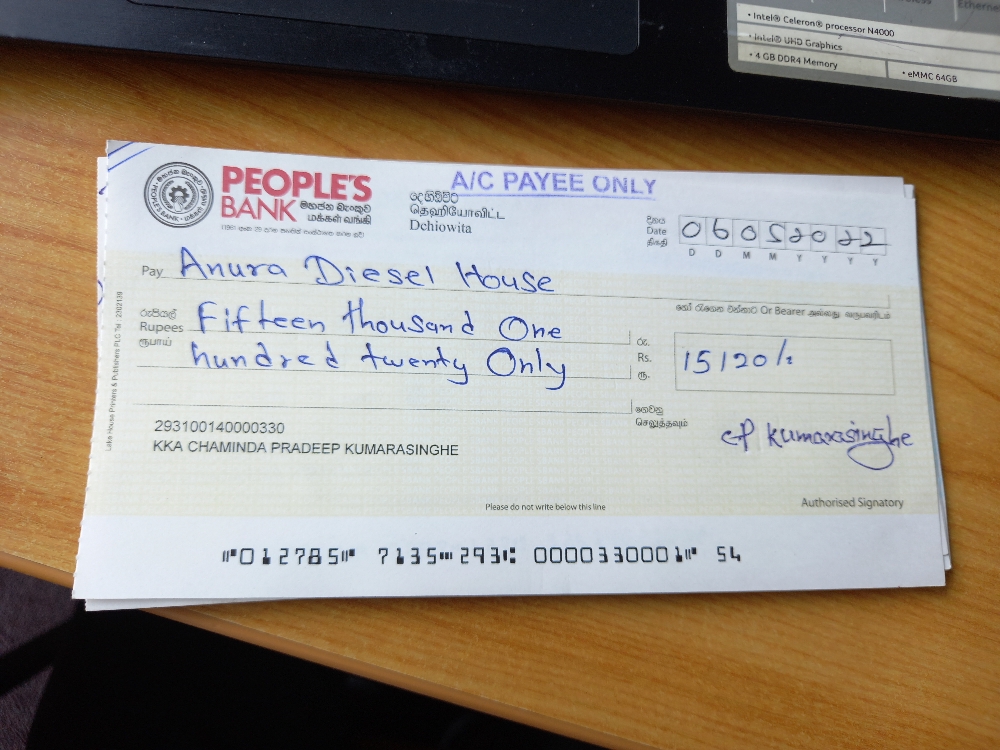 • Intel® Celeron® processor N4000
• Intel® UHD Graphics
• 4 GB DDR4 Memory
• eMMC 64GB
PEOPLE'S
BANK මහජන බැංකුව
மக்கள் வங்கி
දෙහිඕවිට
தெஹியோவிட்ட
Dehiowita
A/C PAYEE ONLY
දිනය
Date
திகதி
06052022
D D M M Y Y Y Y
Pay Anura Diesel House
හෝ රැගෙන එන්නාට Or Bearer அல்லது வருபவரிடம்
රුපියල්
Rupees
ரூபாய்
Fifteen thousand One
hundred twenty Only
රු.
Rs.
ரூ.
15120/-
ගෙවනු
செலுத்தவும்
293100140000330
KKA CHAMINDA PRADEEP KUMARASINGHE
CP Kumarasinghe
Please do not write below this line
Authorised Signatory
⑈012785⑈ 7135⑉293⑆ 0000330001⑈ 54
Lake House Printers & Publishers PLC Tel : 2202139